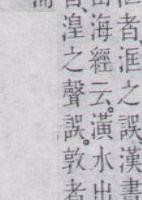 者洭之誤漢書
海經云。潢水出
者湟之聲誤。敦者